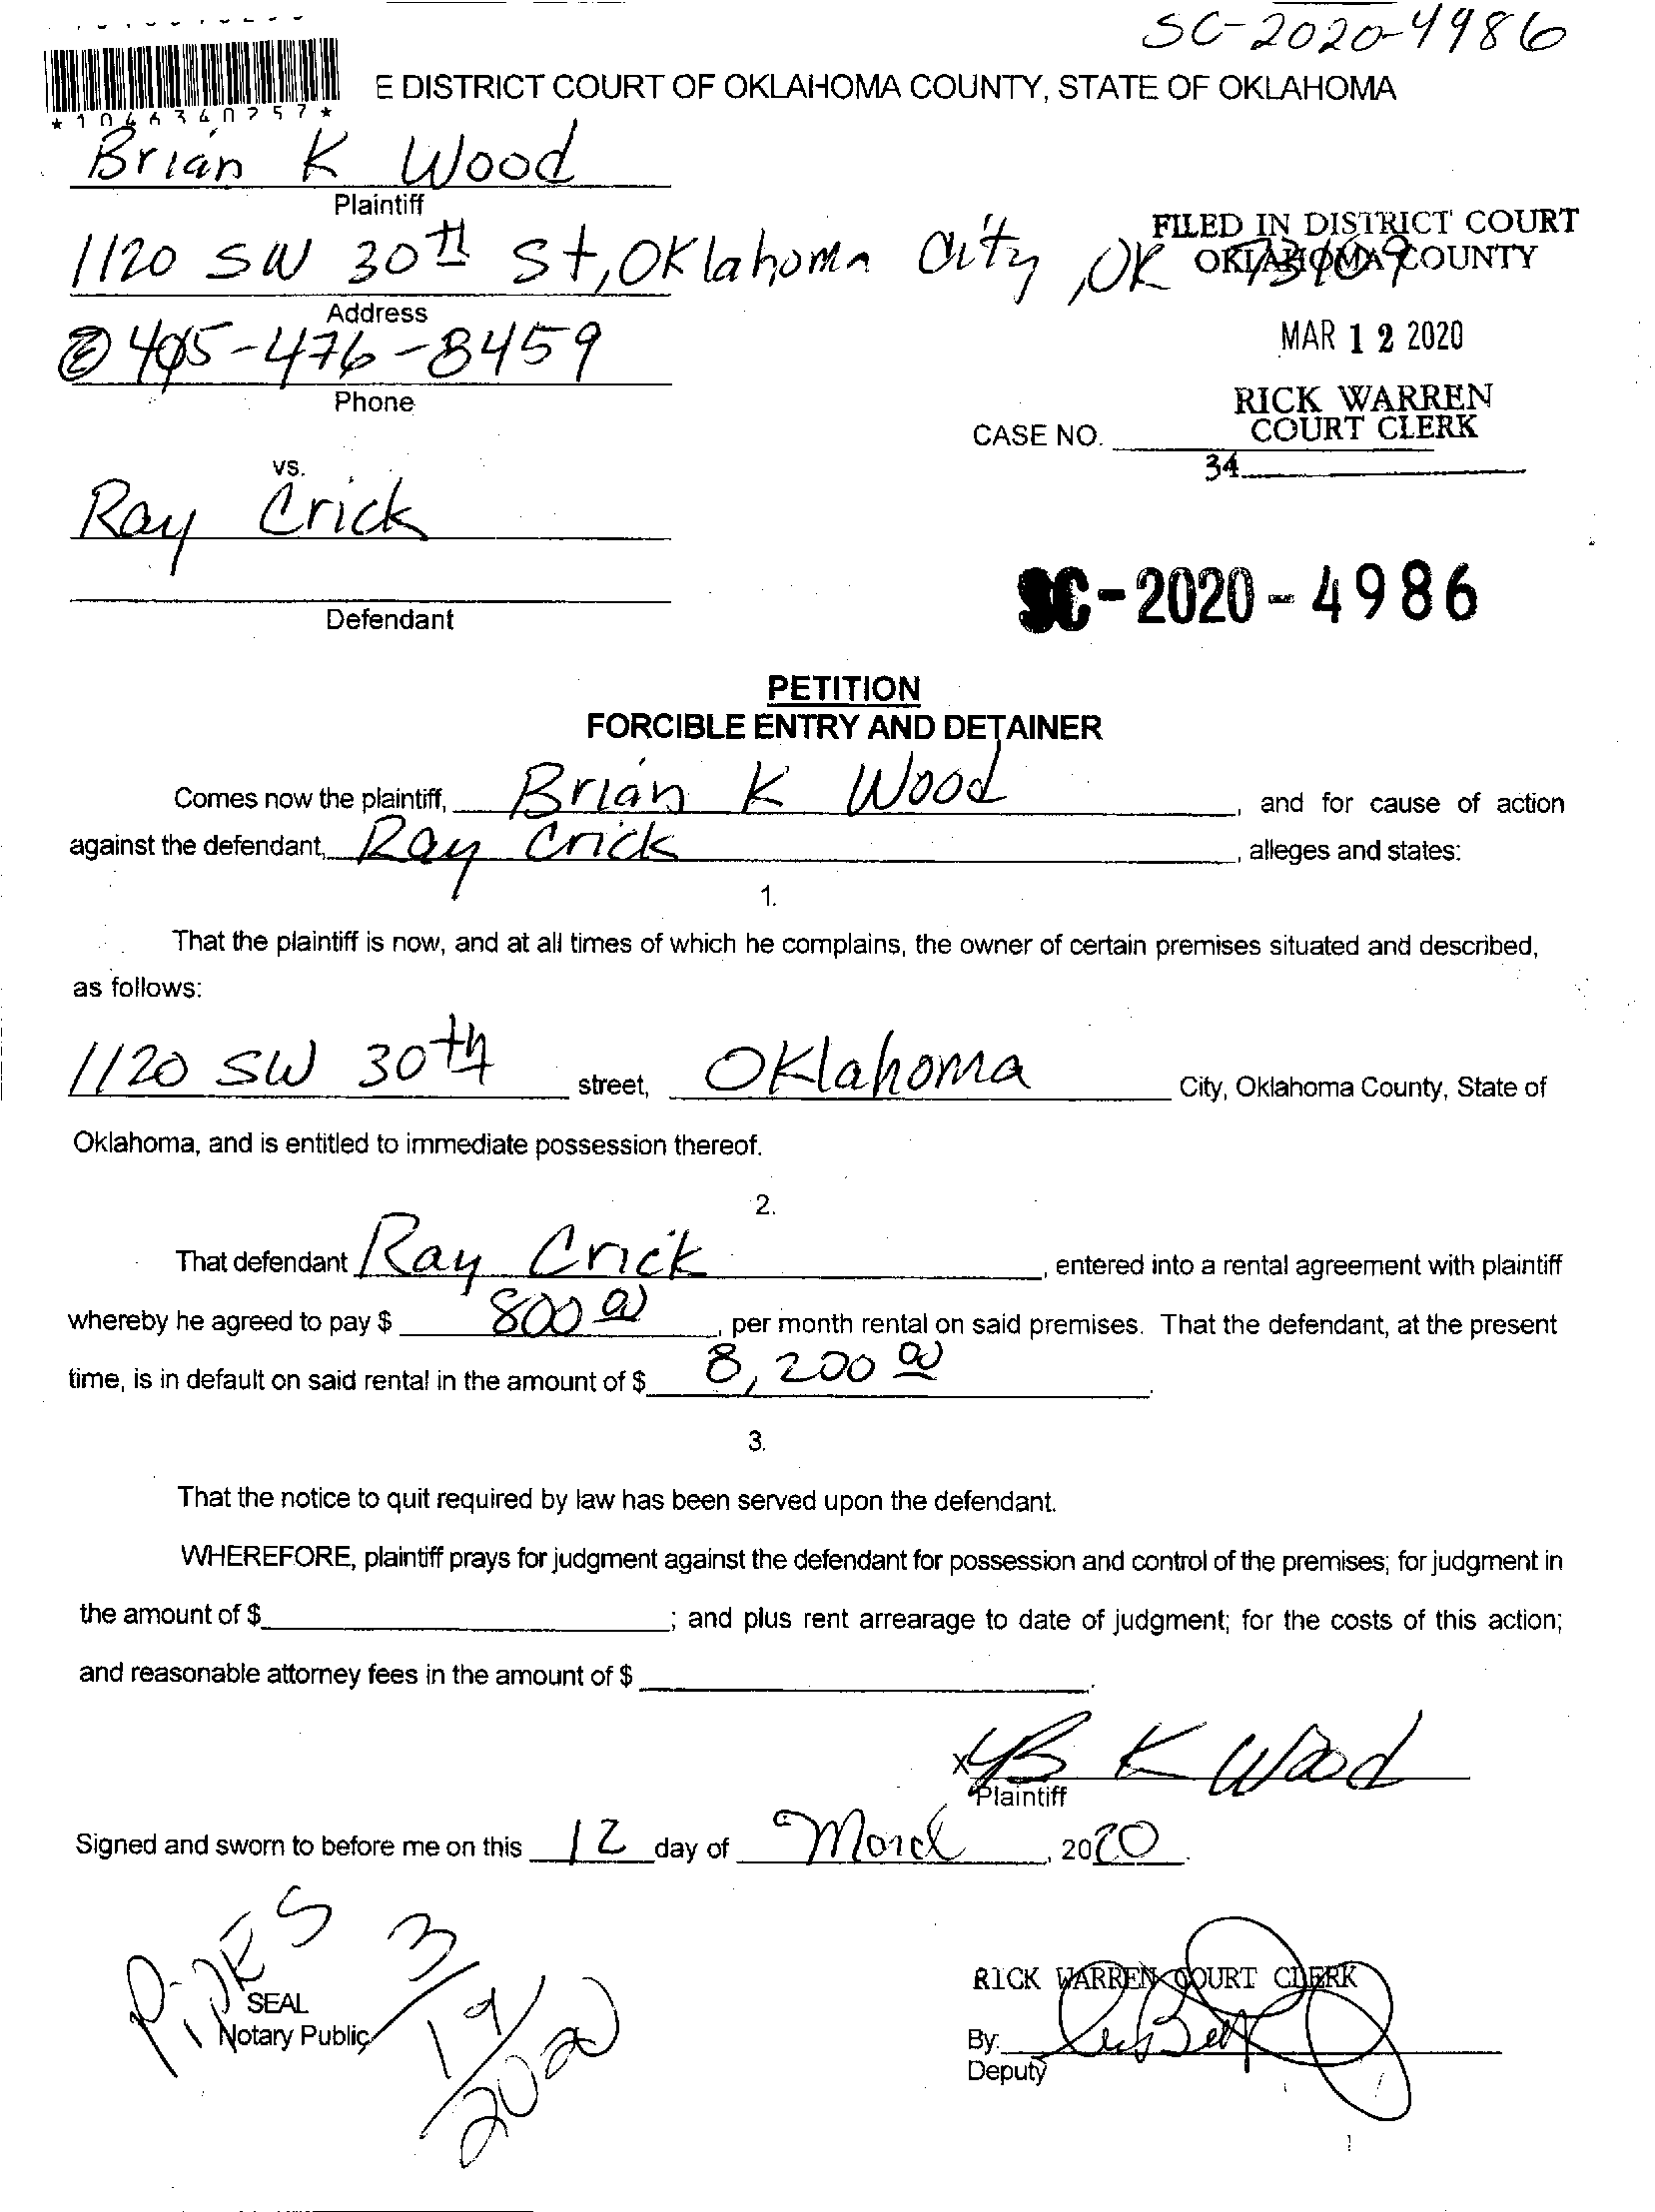 SC-2020-4986
E DISTRICT COURT OF OKLAHOMA COUNTY, STATE OF OKLAHOMA
*1046340257*
Brian K Wood
Plaintiff
1120 SW 30th St, Oklahoma City, OK 73109
FILED IN DISTRICT COURT
OKLAHOMA COUNTY
Address
405-476-8459
Phone
MAR 12 2020
RICK WARREN
COURT CLERK
CASE NO.
34
vs.
Ray Crick
Defendant
SC-2020-4986
PETITION
FORCIBLE ENTRY AND DETAINER
Comes now the plaintiff, Brian K Wood, and for cause of action
against the defendant, Ray Crick, alleges and states:
1.
That the plaintiff is now, and at all times of which he complains, the owner of certain premises situated and described,
as follows:
1120 SW 30th street, Oklahoma City, Oklahoma County, State of
Oklahoma, and is entitled to immediate possession thereof.
2.
That defendant Ray Crick, entered into a rental agreement with plaintiff
whereby he agreed to pay $ 800 00, per month rental on said premises. That the defendant, at the present
time, is in default on said rental in the amount of $ 8,200 00.
3.
That the notice to quit required by law has been served upon the defendant.
WHEREFORE, plaintiff prays for judgment against the defendant for possession and control of the premises; for judgment in
the amount of $ ; and plus rent arrearage to date of judgment; for the costs of this action;
and reasonable attorney fees in the amount of $ .
x B K Wood
Plaintiff
Signed and sworn to before me on this 12 day of March, 2020.
3/19/2020
SEAL
Notary Public
RICK WARREN COURT CLERK
By:
Deputy